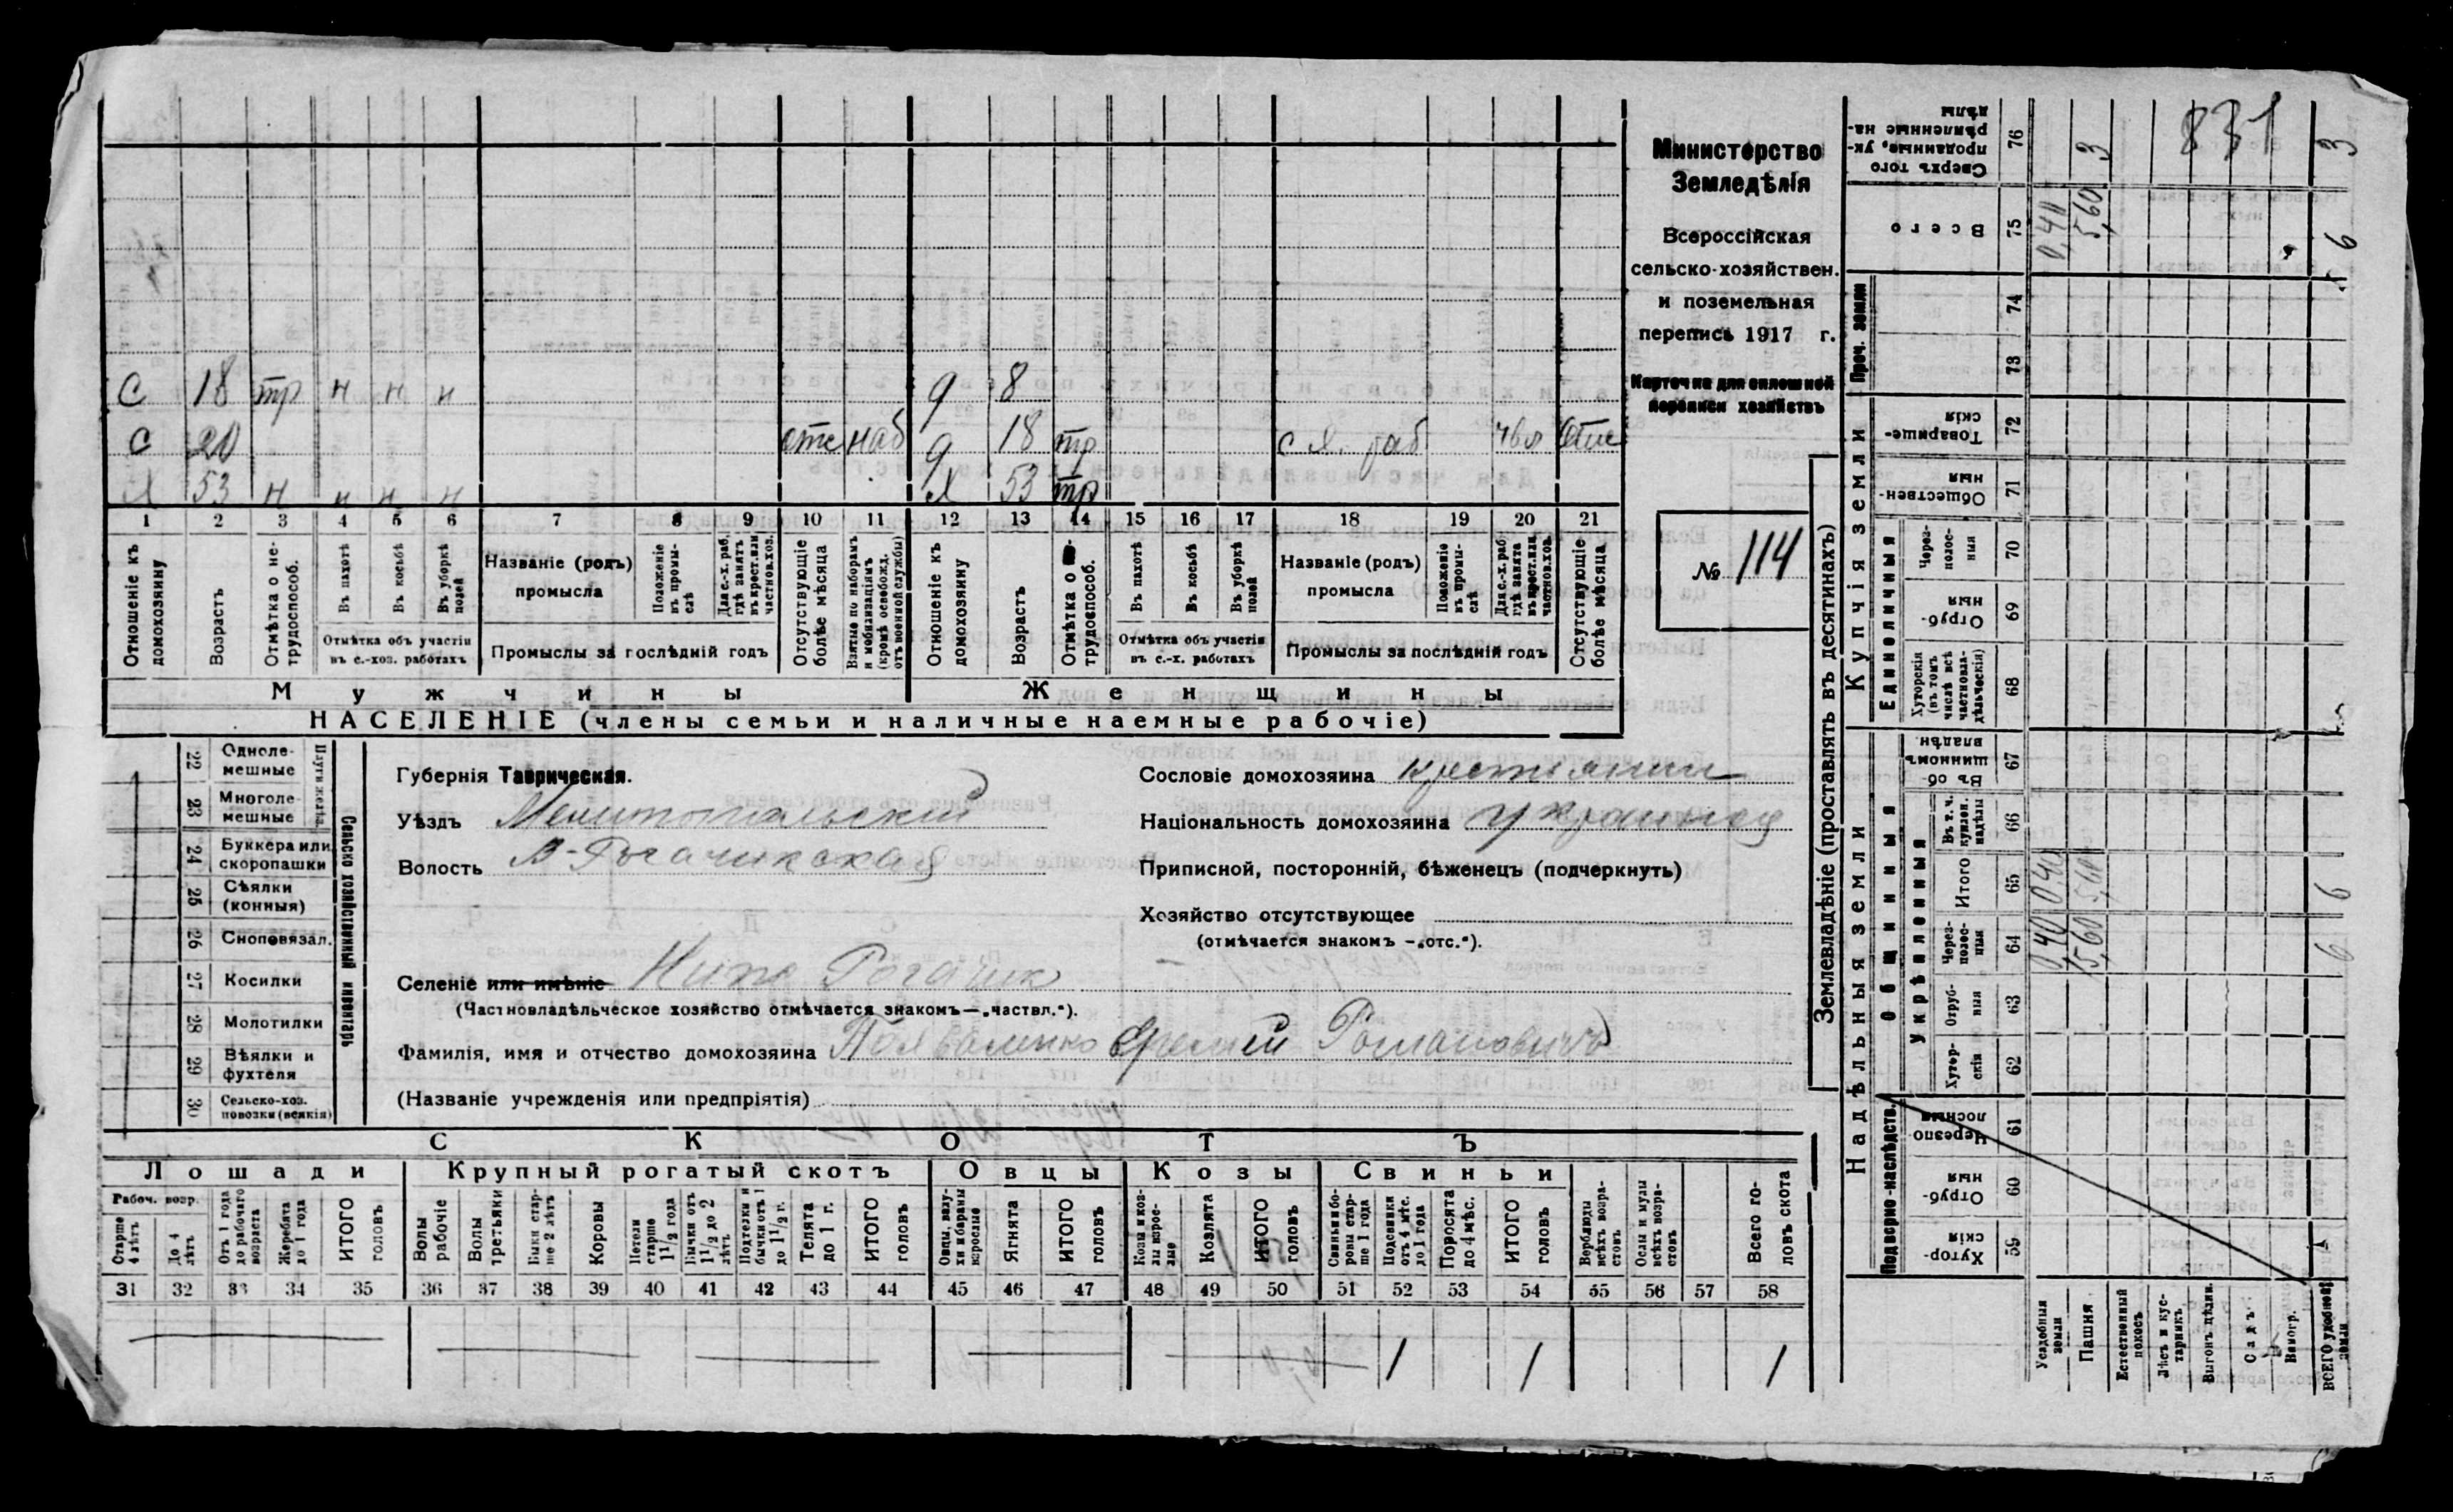 С 18 тр н н н
С 20 отс наб
Х 53 н н н н
д 8
д 18 тр отс
Х 53 тр
1 2 3 4 5 6 7 8 9 10 11 12 13 14 15 16 17 18 19 20 21
Отношеніе къ домохозяину
Возрастъ
Отмѣтка о не-трудоспособ.
Въ пахотѣ
Въ косьбѣ
Въ уборкѣ полей
Отмѣтка объ участіи въ с.-хоз. работахъ
Названіе (родъ) промысла
Положеніе въ промы-слѣ
Для с.-х. раб. гдѣ занятъ въ крест. или частнов. хоз.
Промыслы за послѣдній годъ
Отсутствующіе болѣе мѣсяца
Взятые по наборамъ и мобилизаціямъ (кромѣ освобожд. отъ военной службы)
Отношеніе къ домохозяину
Возрастъ
Отмѣтка о трудоспособ.
Въ пахотѣ
Въ косьбѣ
Въ уборкѣ полей
Отмѣтка объ участіи въ с.-х. работахъ
Названіе (родъ) промысла
Положеніе въ промы-слѣ
Для с.-х. раб. гдѣ занята въ крест. или частнов. хоз.
Промыслы за послѣдній годъ
Отсутствующіе болѣе мѣсяца
Мужчины
Женщины
НАСЕЛЕНІЕ (члены семьи и наличные наемные рабочіе)
Министерство
Земледѣлія
Всероссійская
сельско-хозяйствен.
и поземельная
перепись 1917 г.
Карточка для сплошной
переписи хозяйствъ
№ 114
22 Одноле-мешные
23 Многоле-мешные
24 Буккера или скоропашки
25 Сѣялки (конныя)
26 Сноповязал.
27 Косилки
28 Молотилки
29 Вѣялки и фухтеля
30 Сельско-хоз. повозки (всякія)
Сельско хозяйственный инвентарь
Губернія Таврическая.
Уѣздъ Мелитопольскій
Волость В-Рогачикская
Селеніе или имѣніе Ниж Рогачик
(Частновладѣльческое хозяйство отмѣчается знакомъ—„частвл.“).
Фамилія, имя и отчество домохозяина Романовичъ
(Названіе учрежденія или предпріятія)
Сословіе домохозяина крестьянин
Національность домохозяина
Приписной, посторонній, бѣженецъ (подчеркнуть)
Хозяйство отсутствующее
(отмѣчается знакомъ —„отс.“).
СКОТЪ
Лошади
Крупный рогатый скотъ
Овцы
Козы
Свиньи
Рабоч. возр.
Старше 4 лѣтъ
До 4 лѣтъ
Отъ 1 года до рабочаго возраста
Жеребята до 1 года
ИТОГО головъ
Волы рабочіе
Волы третьяки
Быки стар-ше 2 лѣтъ
Коровы
Нетели старше 1 1/2 года
Бычки отъ 1 1/2 до 2 лѣтъ
Подтелки и бычки отъ 1 до 1 1/2 г.
Телята до 1 г.
ИТОГО головъ
Овцы, валу-хи и бараны взрослые
Ягнята
ИТОГО головъ
Козы и коз-лы взрос-лые
Козлята
ИТОГО головъ
Свиньи и бо-ровы стар-ше 1 года
Подсвинки отъ 4 мѣс. до 1 года
Поросята до 4 мѣс.
ИТОГО головъ
Верблюды всѣхъ возра-стовъ
Ослы и мулы всѣхъ возра-стовъ
Всего го-ловъ скота
31 32 33 34 35 36 37 38 39 40 41 42 43 44 45 46 47 48 49 50 51 52 53 54 55 56 57 58
1 1 1
Землевладѣніе (проставлять въ десятинахъ)
Надѣльныя земли
Купчія земли
Сверхъ того проданные, ук-рѣпленные на-дѣлы 76
Всего 75
Проч. земли
74
73
Товарище-скія 72
Обществен-ныя 71
Единоличныя
Через-полос-ныя 70
Отруб-ныя 69
Хуторскія (въ томъ числѣ всѣ частновла-дѣльческія) 68
Общинныя
Въ об-щинномъ владѣн. 67
Укрѣпленныя
Въ т. ч. куплен. надѣлы 66
Итого 65
Через-полос-ныя 64
Отруб-ныя 63
Хутор-скія 62
Подворно-наслѣдств.
Черезпо-лосныя 61
Отруб-ныя 60
Хутор-скія 59
Усадебныя земли
Пашня
Естественный покосъ
Лѣсъ и кус-тарникъ
Выгонъ
Садъ
Виногр.
ВСЕГО удобной земли
831
3 3
0,40 5,60 6
0,40 6
0,40 5,60 6